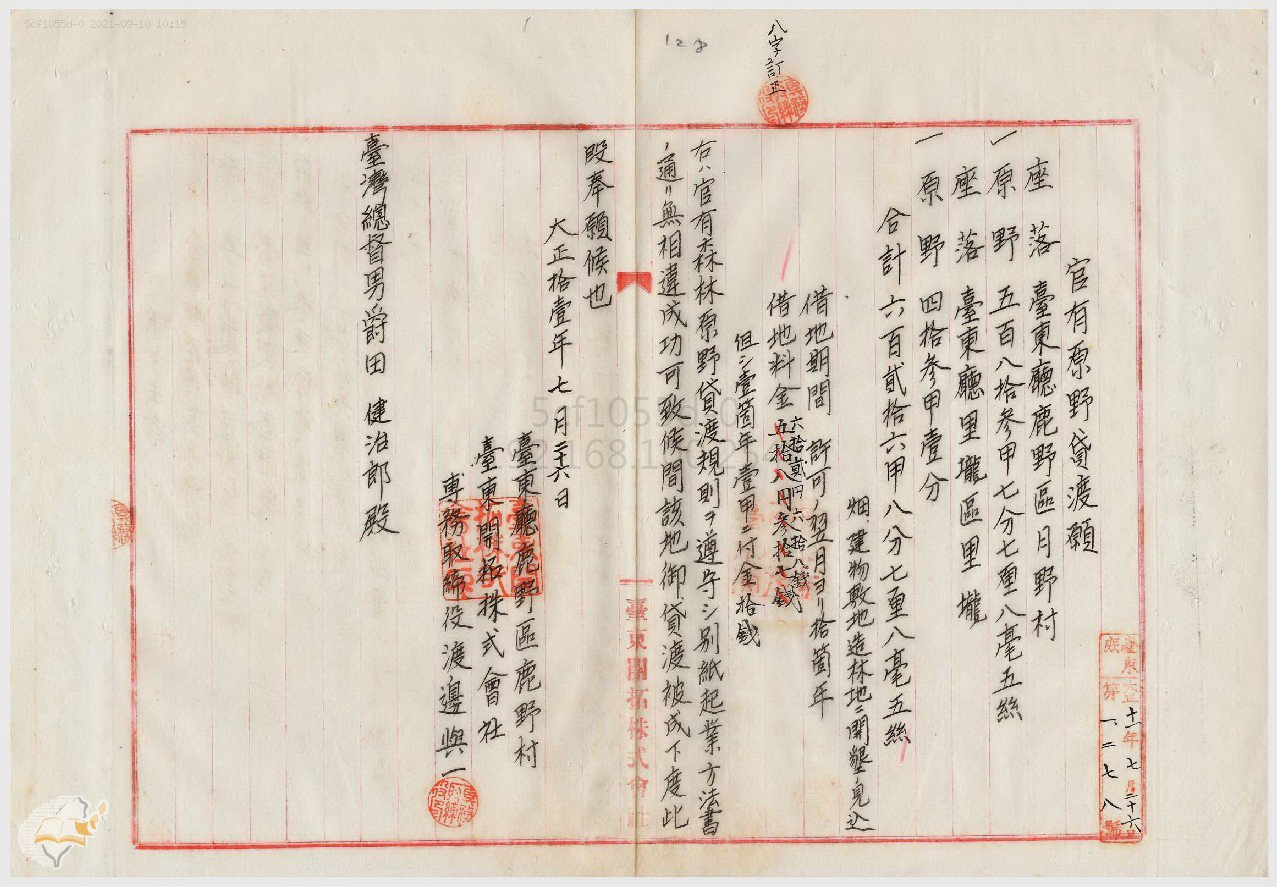 5cf1055d-0 2021-09-10 10:15
128
八字訂正
官有原野貸渡願
座落 臺東廳鹿野區月野村
一原野 五百八拾參甲七分七厘八毫五絲
座落 臺東廳里壠區里壠
一原野 四拾參甲壹分
合計六百貳拾六甲八分七厘八毫五絲
畑、建物敷地造林地ニ開墾ノ見込
借地期間 許可ノ翌月ヨリ拾箇年
借地料金五拾八円參拾七錢
六拾貳円六拾八錢
但シ壹箇年壹甲ニ付金拾錢
右ハ官有森林原野貸渡規則ヲ遵守シ別紙起業方法書
ノ通リ無相違成功可致候間該地御貸渡被成下度此
段奉願候也
大正拾壹年七月二十六日
臺東廳鹿野區鹿野村
臺東開拓株式會社
專務取締役渡邊與一
臺灣總督男爵田 健治郎殿
臺東開拓株式會社
臺東
十一年七月二十六日
第一二七八號
5cf1055d-0